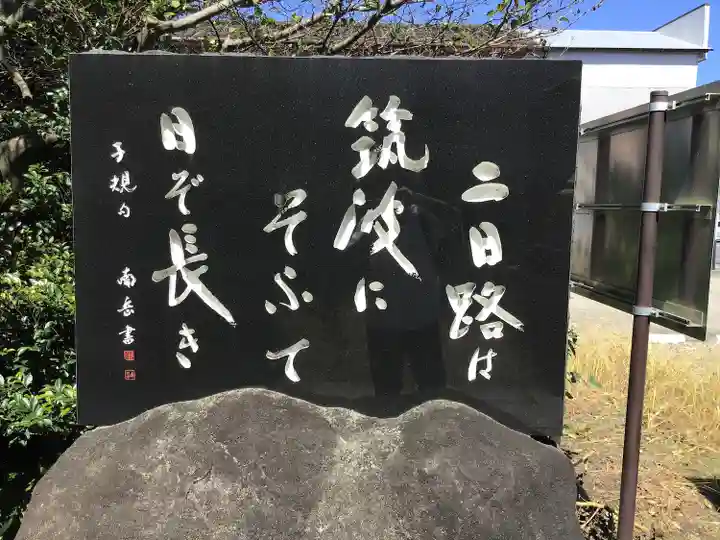 二日路は
筑波に
そふて
日ぞ長き
子規句
南岳書